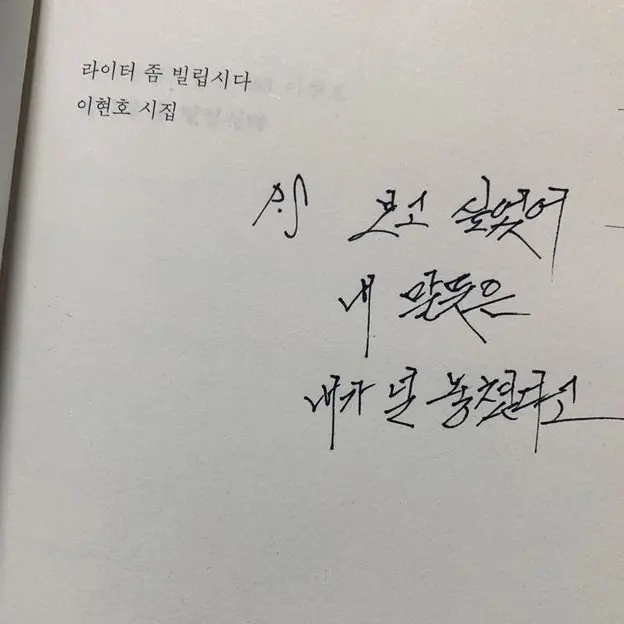 라이터 좀 빌립시다
이현호 시집
보고 싶었어
내 말뜻은
내가 널 놓쳤다고